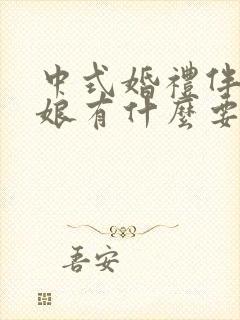 中式婚禮伴
娘有什麼要
吾安